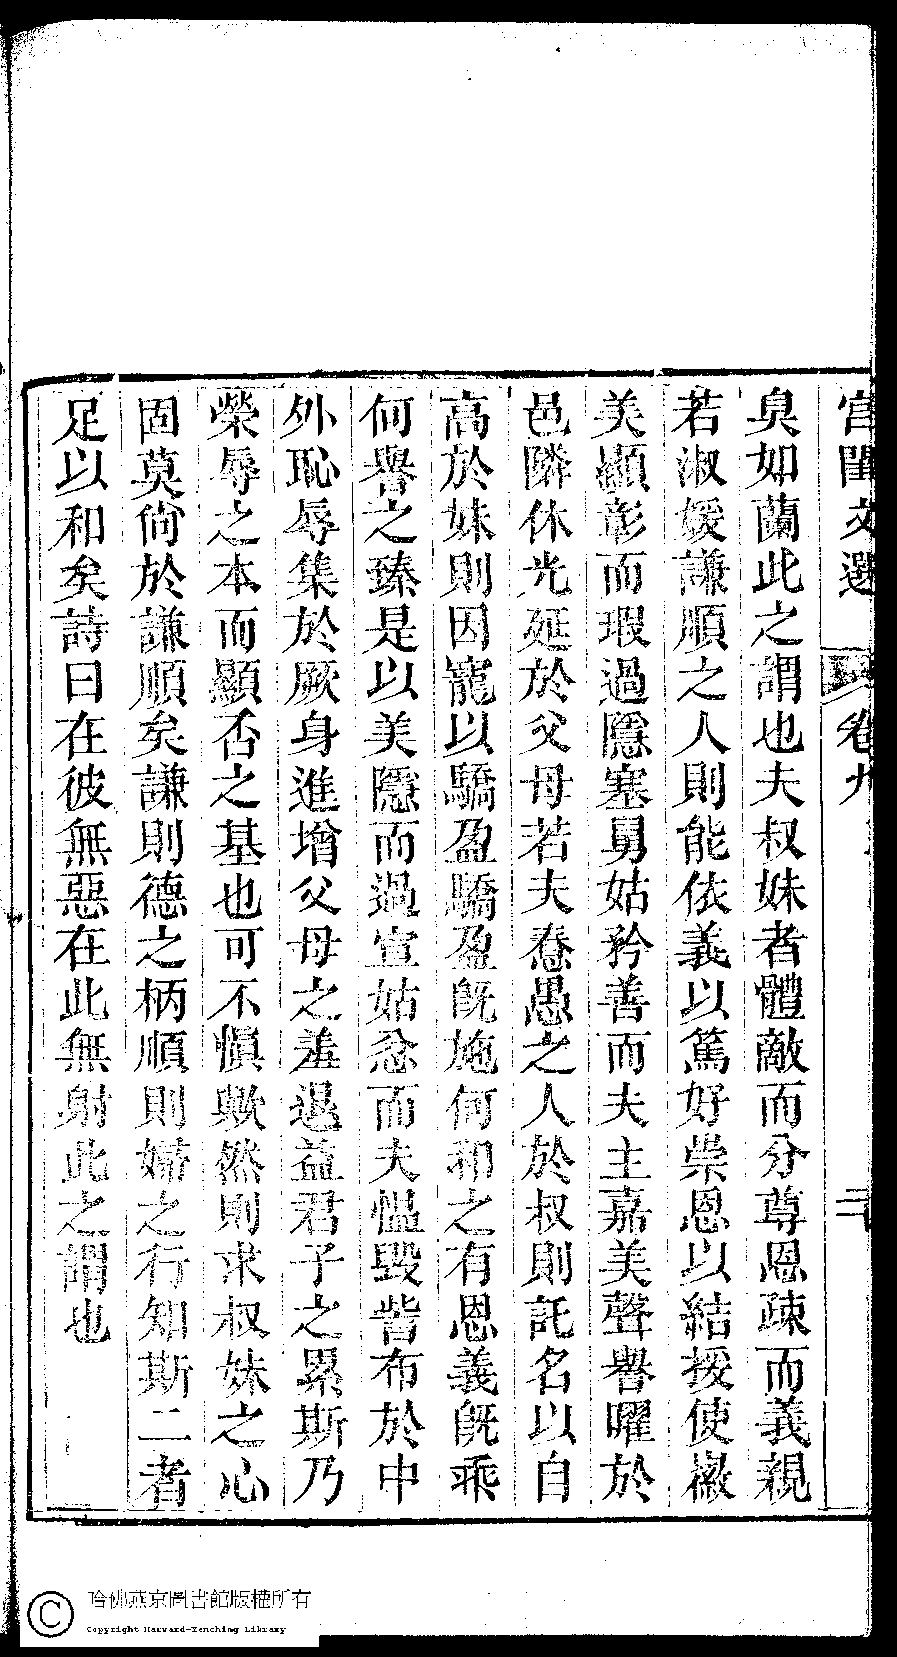 宮閨文選 卷九 二十
臭如蘭此之謂也夫叔妹者體敵而分尊恩疎而義親
若淑媛謙順之人則能依義以篤好崇恩以結援使徽
美顯彰而瑕過隱塞舅姑矜善而夫主嘉美聲譽曜於
邑隣休光延於父母若夫惷愚之人於叔則託名以自
高於妹則因寵以驕盈驕盈旣施何和之有恩義旣乖
何譽之臻是以美隱而過宣姑忿而夫慍毀訾布於中
外恥辱集於厥身進增父母之羞退益君子之累斯乃
榮辱之本而顯否之基也可不愼歟然則求叔妹之心
固莫尙於謙順矣謙則德之柄順則婦之行知斯二者
足以和矣詩曰在彼無惡在此無射此之謂也
哈佛燕京圖書館版權所有
Copyright Harvard-Yenching Library